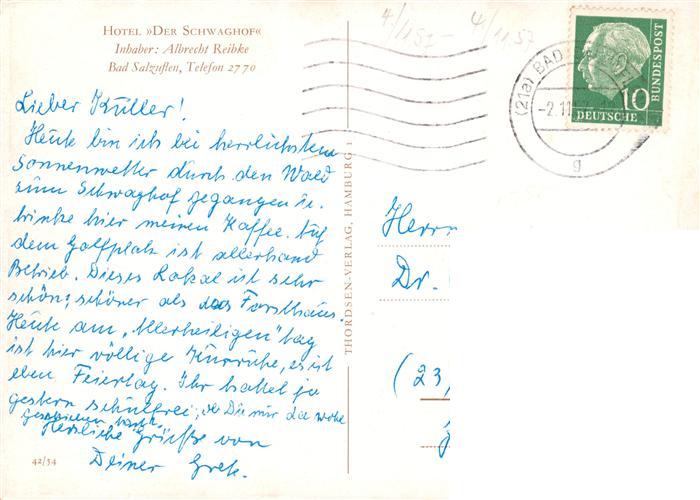 HOTEL »DER SCHWAGHOF«
Inhaber: Albrecht Reibke
Bad Salzuflen, Telefon 27 70
4/11 57 – 4/11.57
(21a) BAD
-2.11.
g
10
DEUTSCHE
BUNDESPOST
Lieber Küller!
Heute bin ich bei herrlichstem
Sonnenwetter durch den Wald
zum Schwaghof gegangen u.
trinke hier meinen Kaffee. Auf
dem Golfplatz ist allerhand
Betrieb. Dieses Lokal ist sehr
schön; schöner als das Forsthaus.
Heute am „Allerheiligen"tag
ist hier völlige, es ist
eben Feiertag. Ihr hattet ja
gestern schulfrei; ob Du mir da wohl
geschrieben hast?
Herzliche Grüße von
Deiner Gret.
42/54
THORDSEN-VERLAG, HAMBURG 1
Herrn
Dr.
(23)